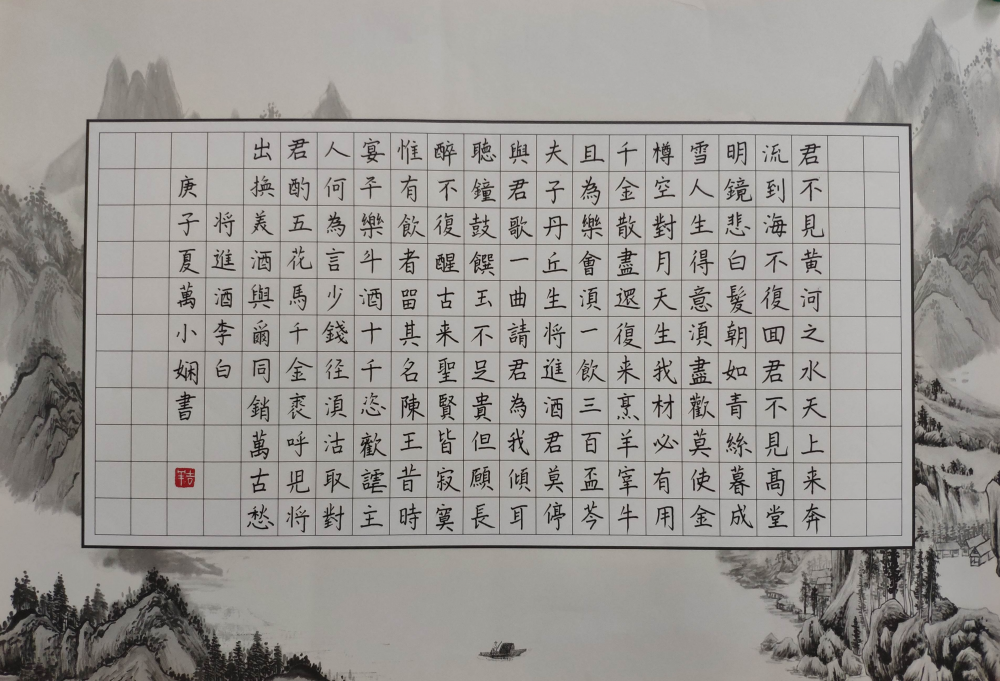 君不見黄河之水天上来奔
流到海不復囬君不見髙堂
明鏡悲白髮朝如青絲暮成
雪人生得意湏盡歡莫使金
樽空對月天生我材必有用
千金散盡還復来烹羊宰牛
且為樂會湏一飲三百盃芩
夫子丹丘生将進酒君莫停
與君歌一曲請君為我傾耳
聴鐘鼓饌玉不足貴但願長
醉不復醒古来聖賢皆寂寞
惟有飲者留其名陳王昔時
宴平樂斗酒十千恣歡謔主
人何為言少錢径湏沽取對
君酌五花馬千金裘呼児将
出換美酒與爾同銷萬古愁
将進酒李白
庚子夏萬小嫻書